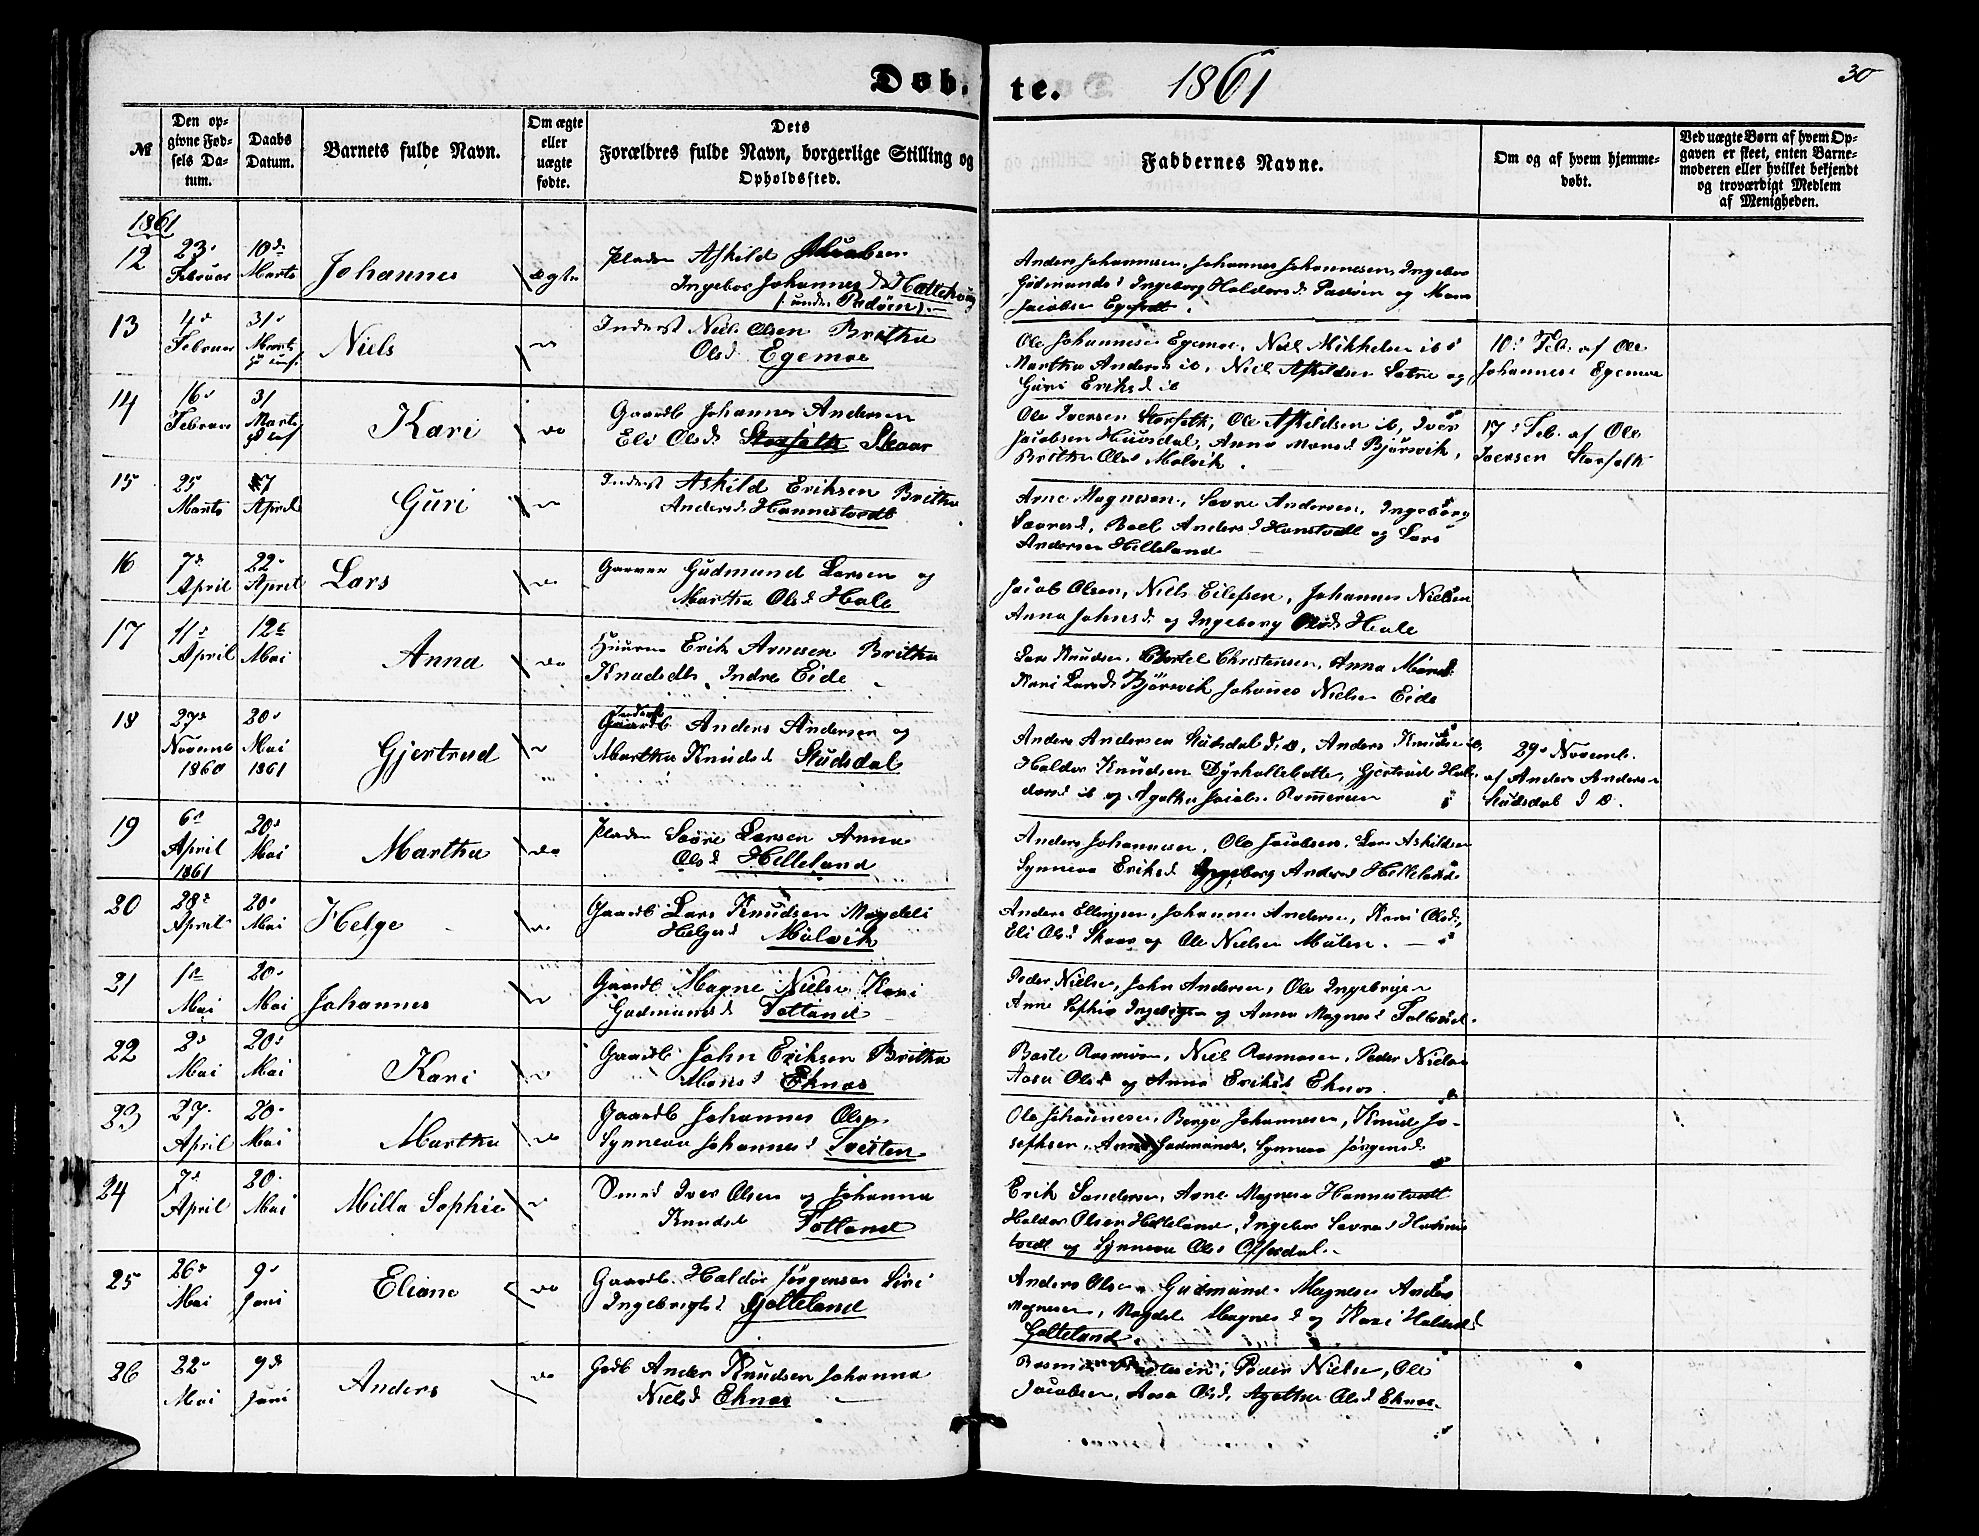 Døb. te. 1861 30
№
Den opgivne Fødsels Datum.
Daabs Datum.
Barnets fulde Navn.
Om ægte eller uægte fødte.
Dets Forældres fulde Navn, borgerlige Stilling og Opholdssted.
Faddernes Navne.
Om og af hvem hjemmedøbt.
Ved uægte Børn af hvem Opgaven er skeet, enten Barnemoderen eller hvilket bekjendt og troværdigt Medlem af Menigheden.
1861
12 23 Februar 10 Marts Johannes ægte Askild Jacobsen
Ingebor Johannesd
(under Padøen)
Anders Johannesen, Johannes Johannesen, Ingebor
Gudmundsd Ingeborg Haldorsd Padøen og Mons
Jacobsen
13 4 Februar 31 Marts Niels do Inderst Niels Olsen Britha
Olsd Egemoe
Ole Johannesen Egemoe, Niels Mikkelsen ib
Martha Andersd ib, Niels Askildsen Sætre og
Guri Eriksd ib
10 Feb. af Ole
Johannesen Egemoe
14 16 Februar 31 Marts Kari do Gaardb Johannes Andersen
Eli Olsd Storfolk Skaar
Ole Iversen Storfolk, Ole Askildsen ib, Iver
Jacobsen Huusdal, Anna Monsd Bjørsvik,
Britha Olsd Molvik.
17 Feb. af Ole
Iversen Storfolk
15 25 Marts 7 April Guri do Inderst Askild Eriksen Britha
Andersd Hannestvedt
Arne Magnesen, Sævre Andersen, Ingeborg
Sævresd, Boel Andersd Hanstvedt og Lars
Andersen Helleland
16 7 April 22 April Lars do Gudmund Larsen og
Martha Olsd Hole
Jacob Olsen, Niels Eilefsen, Johannes Nielsen
Anna Johnsd og Ingeborg Olsd Hole
17 11 April 12 Mai Anna do Erik Arnesen Britha
Knudsdtr Indre Eide
Lars Knudsen, Christensen, Anna Monsd
Kari Larsd Bjørsvik Johannes Nielsen Eide
18 27 Novemb 1860 20 Mai 1861 Gjertrud Inderst Gaardb Anders Andersen og
Martha Knudsd Studsdal
Anders Andersen Studsdal, Anders Knudsen ib,
Haldor Knudsen, Gjertrud Haldorsd
ib og Agatha Jacobs.
29 Novemb.
af Anders Andersen
Studsdal
19 6 April 1861 20 Mai Martha do Sævre Larsen Anna
Olsd Helleland
Anders Johannesen, Ole Jacobsen, Lars Askildsen
Synneva Eriksd Ingeborg Andersd Helleland
20 28 April 20 Mai Helge Gaardb Lars Knudsen Magdeli
Helgesd Mølvik
Anders Ellingsen, Johannes Andersen, Kari Olsd,
Eli Olsd Skaar og Ole Nielsen Mølen.
21 1 Mai 20 Mai Johannes Gaardb Magne Nielsen Kari
Gudmundsd Totland
Peder Nielsen, John Andersen, Ole
Anne Sophie og Anna Magnesd
22 2 Mai 20 Mai Kari Gaardb John Eriksen Britha
Monsd Eknes
Niels Rasmusen, Peder Nielsen
Aasa Olsd og Anna Eriksd Eknes.
23 27 April 20 Mai Martha do Gaardb Johannes Olsen
Synneva Johannesd Tveiten
Ole Johannesen, Berge Johannesen, Knud Josephsen,
Anna Gudmundsd, Synneva Jørgensd
24 7 April 20 Mai Milla Sophie Smed Iver Olsen og Johanna
Knudsd Totland
Erik Sandersen, Arne Magnesen Hannestvedt
Haldor Olsen Helleland, Ingebor Sævresd Hannestvedt
og Synneva Olsd
25 26 Mai 9 Juni Eliane do Gaardb. Haldor Jørgensen Siri
Ingebrigtsd Gjelteland
Anders Olsen, Gudmund Magnesen Anders
Magnesen, Magdel Magnesd og Kari Haldorsd
26 22 Mai 9 Juni Anders do Gdb Anders Knudsen Johanna
Nielsd Eknes
Peder Nielsen, Ole
Jacobsen, Aasa Olsd, Agatha Olsd Eknes.